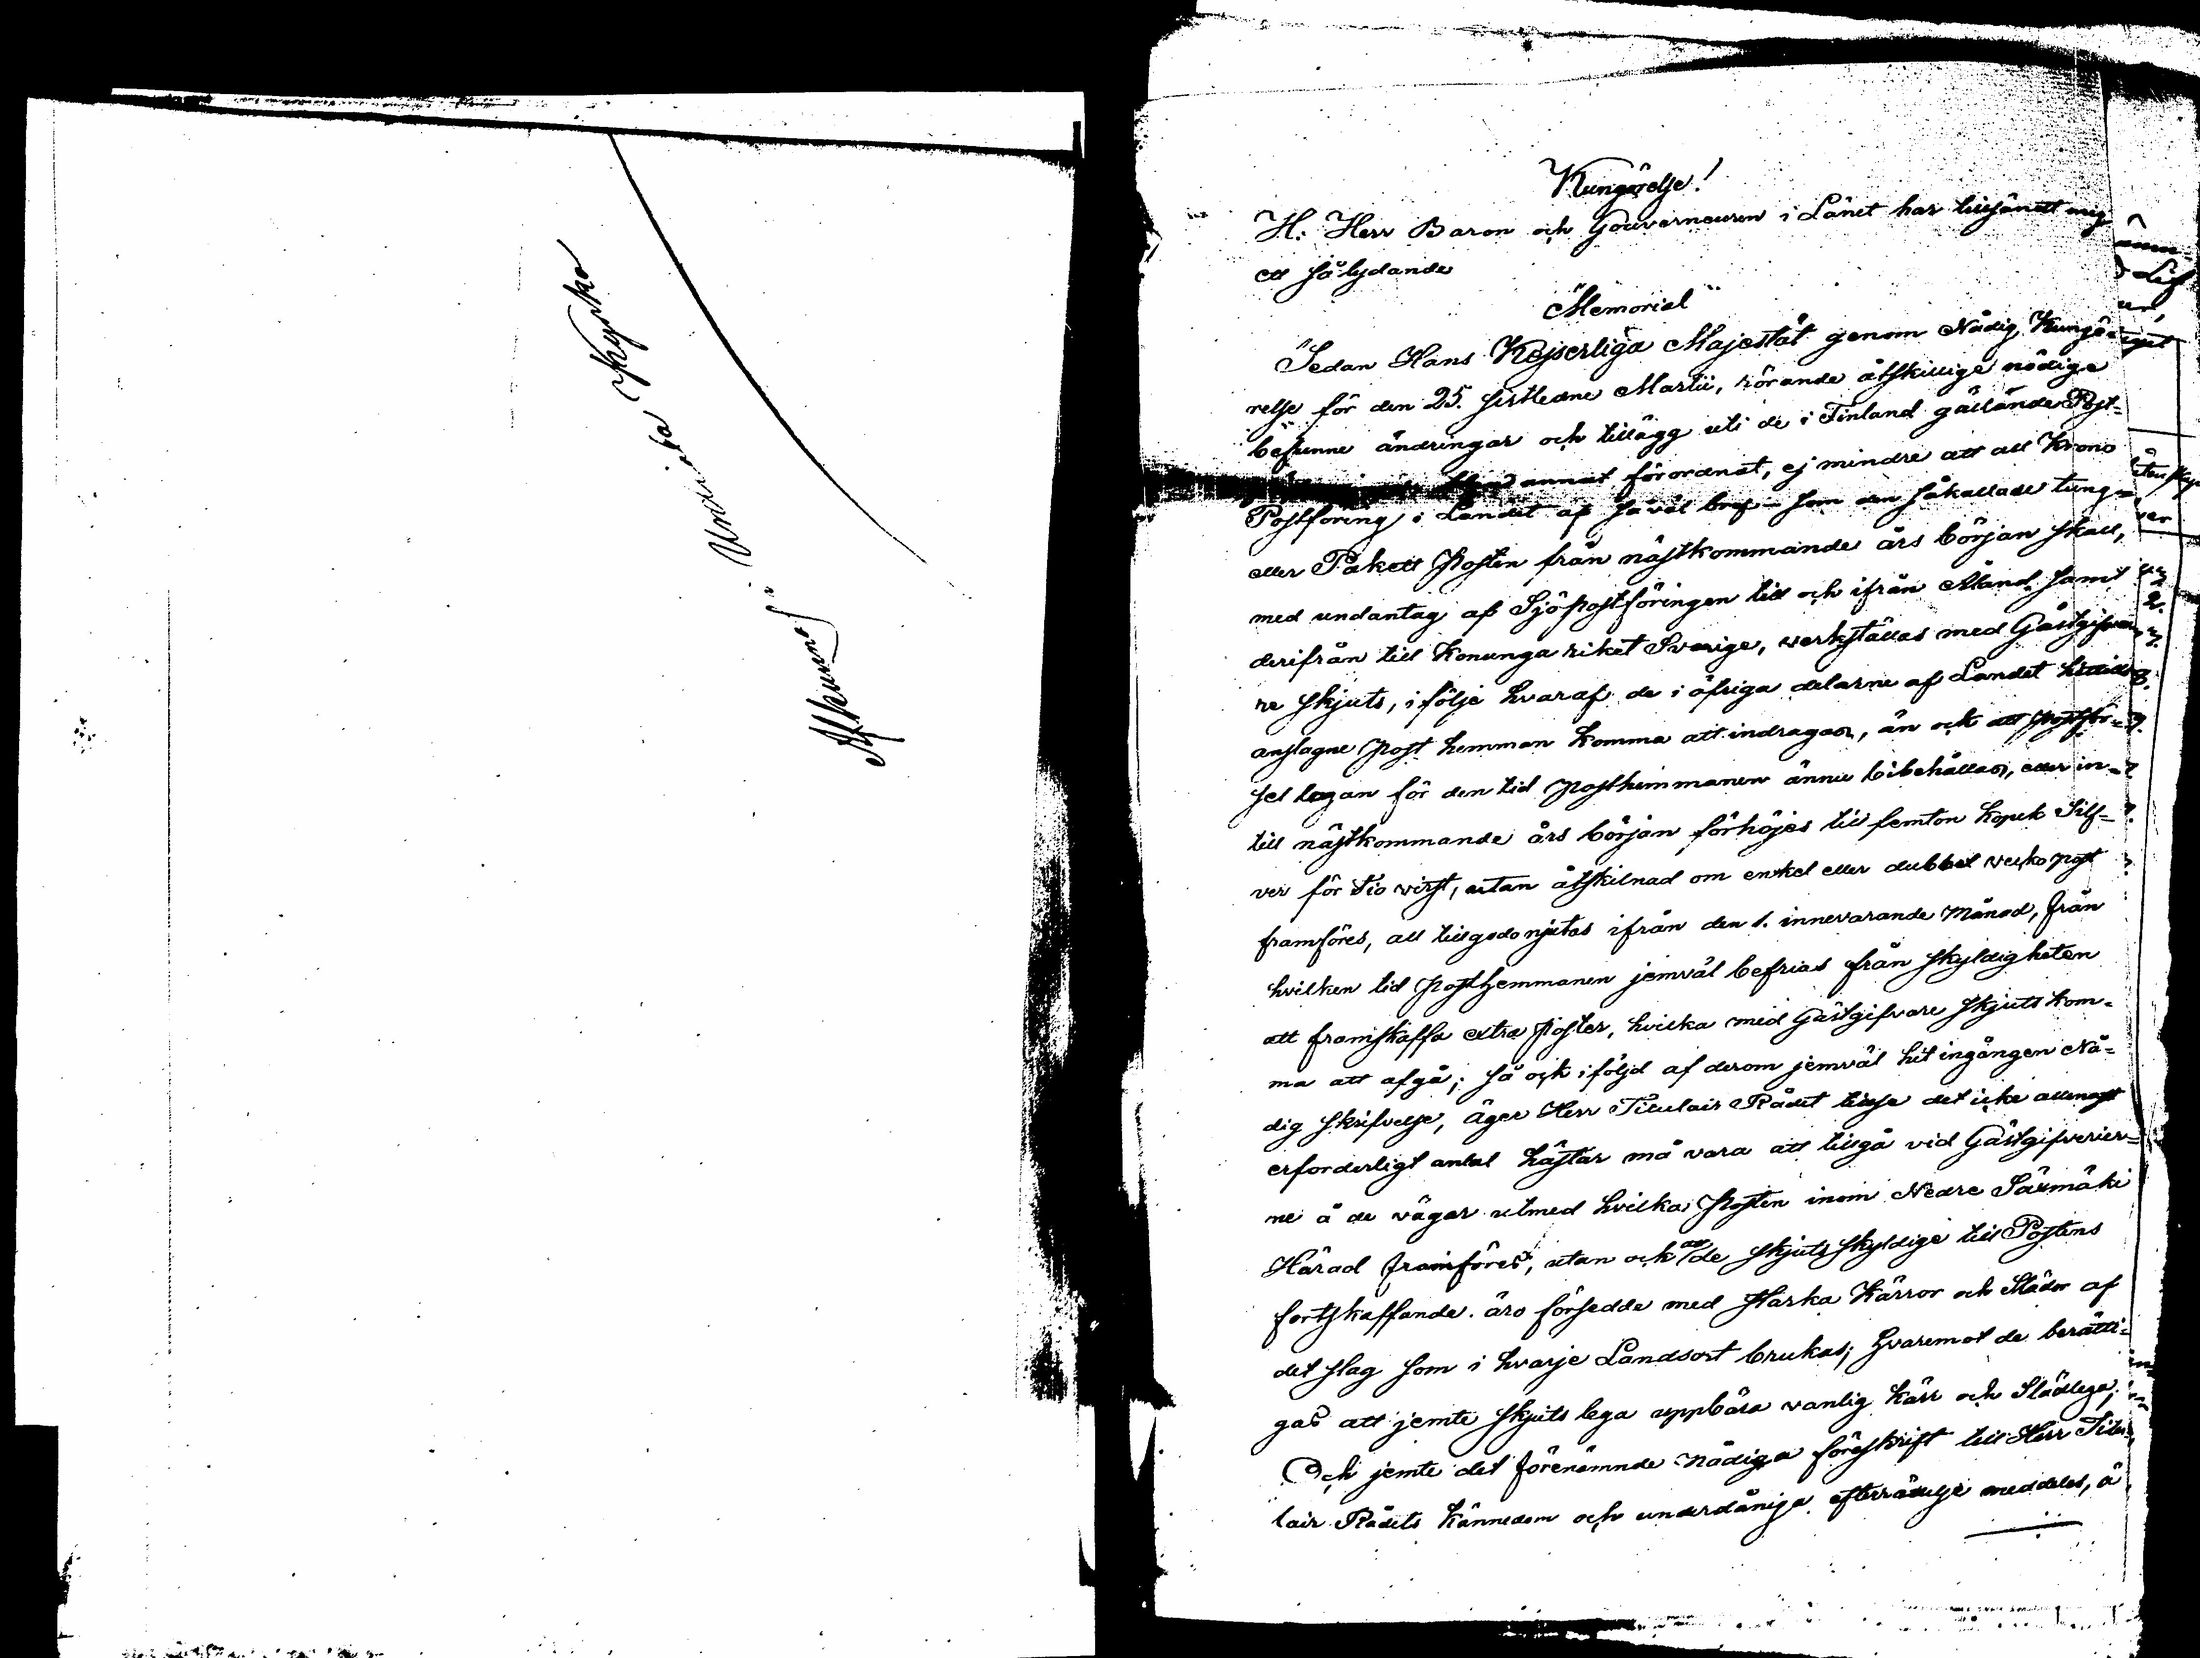 Kungörelse!
H: Herr Baron och Gouverneuren i Länet har tillsändt mig
ett så lydande
"Memorial"
"Sedan Hans Kejserliga Majestät genom Nådig Kungö-
relse för den 25. sistledne Martii, rörande åtskillige nödige
befunne ändringar och tillägg uti de i Finland gällande Post-
annat förordnat, ej mindre att all Krono
Postföring i Landet af såväl bref- som den såkallade tung-
eller Pakett Posten från nästkommande års början skall,
med undantag af Sjöpostföringen till och ifrån Åland samt
derifrån till Konunga riket Sverige, verkställas med Gästgifva-
re skjuts, i följe hvaraf de i öfriga delarne af Landet hittills
anslagne post hemman komma att indragas, än ock att postför-
sel legan för den tid posthemmanen ännu bibehållas, eller in-
till nästkommande års början förhöjes till femton kopek Silf-
ver för tio verst, utan åtskilnad om enkel eller dubbel vecko post
framföres, att tillgodonjutas ifrån den 1. innevarande månad, från
hvilken tid posthemmanen jemväl befrias från skyldigheten
att framskaffa extra poster, hvilka med Gästgifvare skjuts kom-
ma att afgå; så ock i följd af derom jemväl hit ingången Nå-
dig skrifvelse, äger Herr Titulair Rådet tillse det icke allenast
erforderligt antal hästar må vara att tillgå vid Gästgifverier-
ne å de vägar utmed hvilka Posten inom Nedre Säxmäki
Härad framföres, utan ock att de skjutsskyldige till Postens
fortskaffande äro försedde med starka Kärror och Slädor af
det slag som i hvarje Landsort brukas; hvaremot de berätti-
gas att jemte skjuts lega uppbära vanlig kärr och Slädlega;
Och jemte det förenämnde nådiga föreskrift till Herr Titu-
lair Rådets kännedom och underdåniga efterrättelse meddelas, å